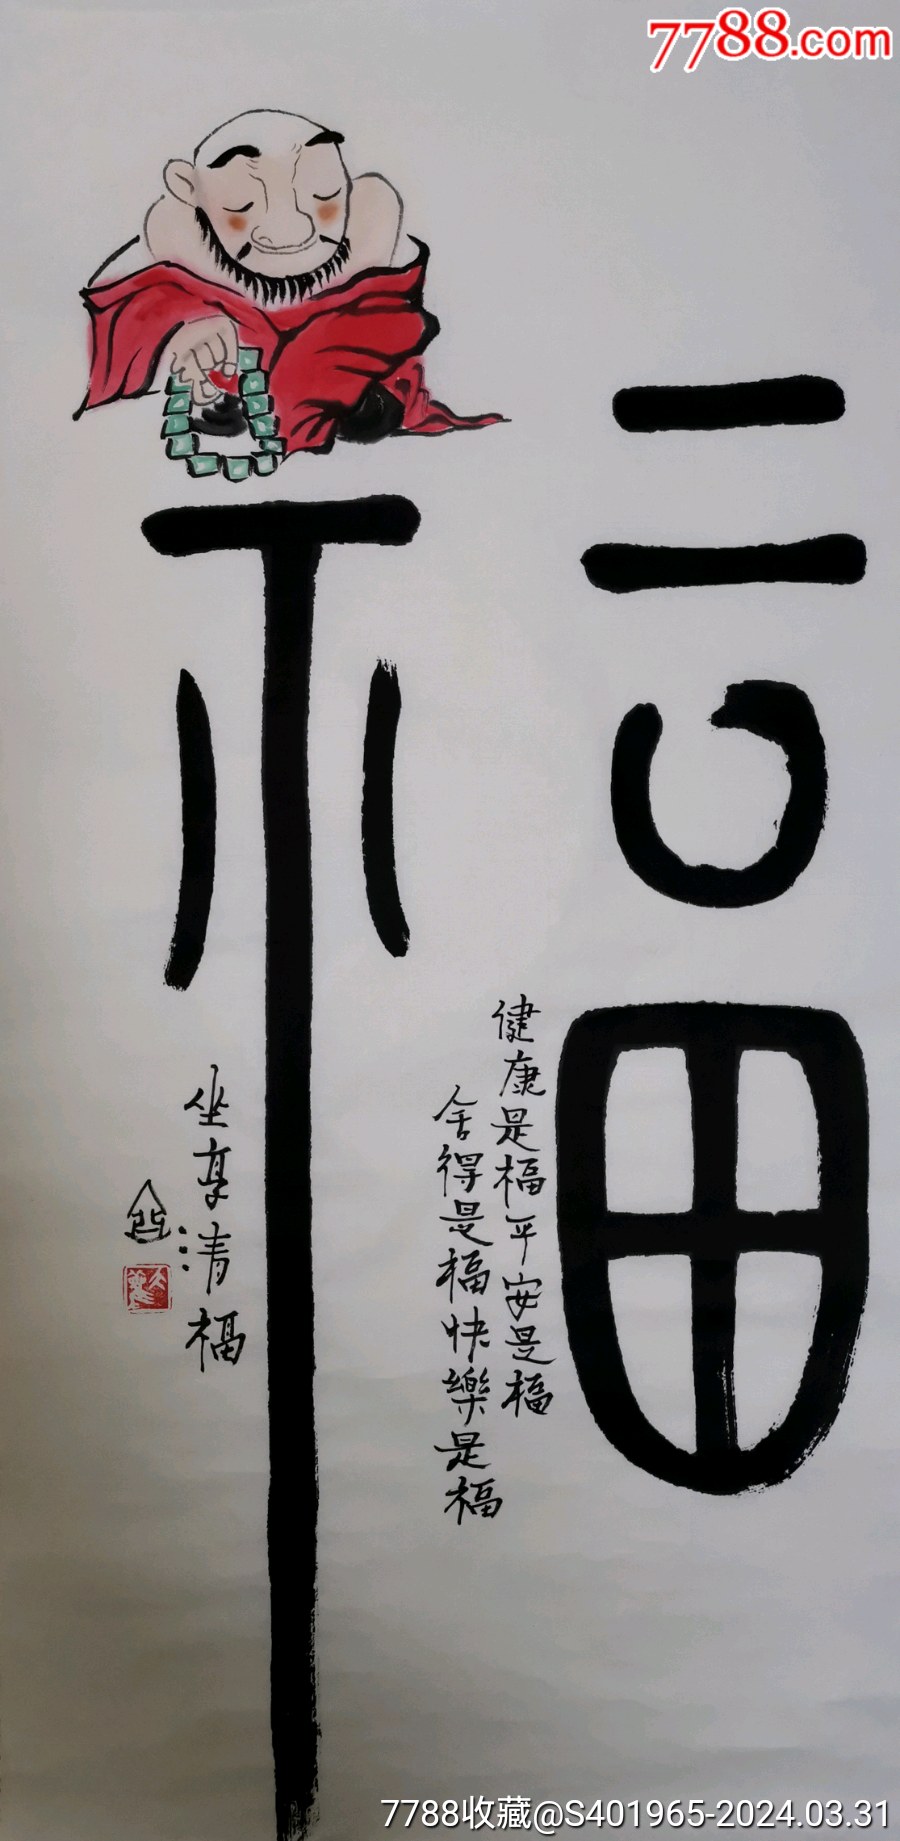 7788.com
福
健康是福平安是福
舍得是福快樂是福
坐享清福
7788收藏@S401965-2024.03.31